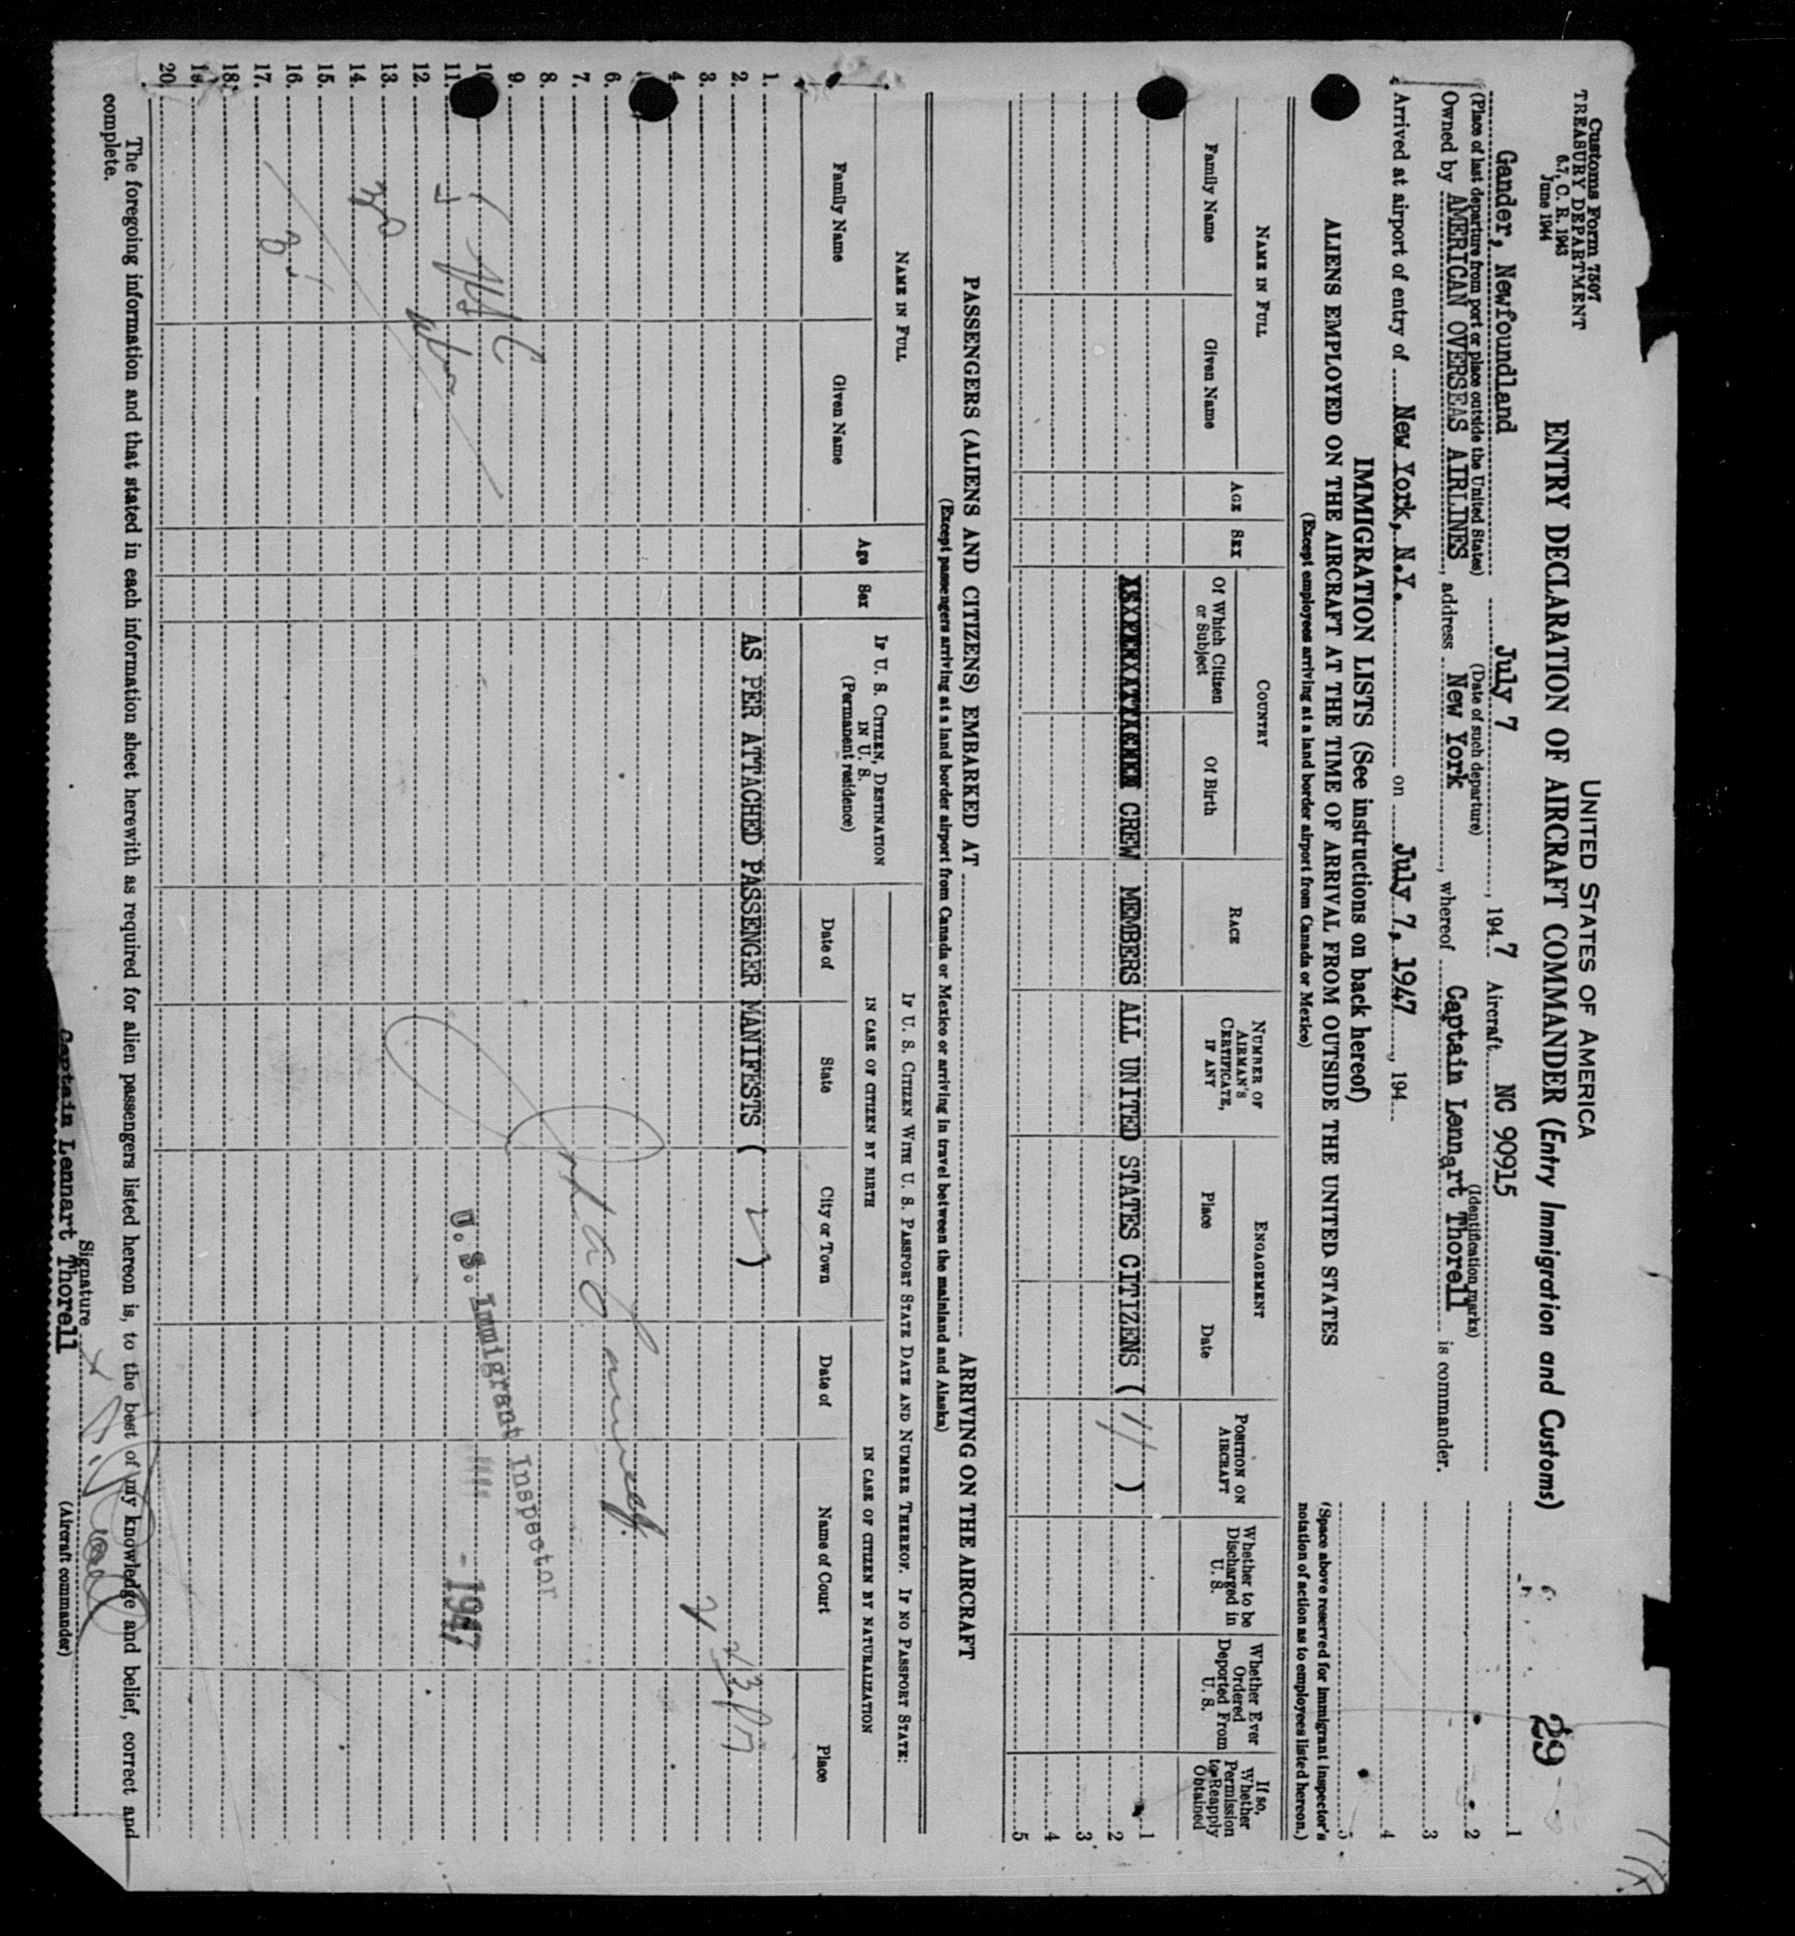 Customs Form 7507
TREASURY DEPARTMENT
6.7, C. R. 1943
June 1944
UNITED STATES OF AMERICA
ENTRY DECLARATION OF AIRCRAFT COMMANDER (Entry Immigration and Customs)
29
Gander, Newfoundland July 7, 1947 Aircraft NC 90915
(Place of last departure from port or place outside the United States) (Date of such departure) (Identification marks)
Owned by AMERICAN OVERSEAS AIRLINES, address New York, whereof Captain Lennart Thorell is commander.
Arrived at airport of entry of New York, N.Y. on July 7, 1947, 194
1
2
3
4
5
(Space above reserved for Immigrant Inspector's notation of action as to employees listed hereon.)
IMMIGRATION LISTS (See instructions on back hereof)
ALIENS EMPLOYED ON THE AIRCRAFT AT THE TIME OF ARRIVAL FROM OUTSIDE THE UNITED STATES
(Except employees arriving at a land border airport from Canada or Mexico)
NAME IN FULL
Family Name
Given Name
AGE
SEX
COUNTRY
Of Which Citizen or Subject
Of Birth
RACE
NUMBER OF AIRMAN'S CERTIFICATE, IF ANY
ENGAGEMENT
Place
Date
POSITION ON AIRCRAFT
Whether to be Discharged in U. S.
Whether Ever Ordered Deported From U. S.
If so, Whether Permission to Reapply Obtained
CREW MEMBERS ALL UNITED STATES CITIZENS ( )
1
2
3
4
5
PASSENGERS (ALIENS AND CITIZENS) EMBARKED AT ARRIVING ON THE AIRCRAFT
(Except passengers arriving at a land border airport from Canada or Mexico or arriving in travel between the mainland and Alaska)
NAME IN FULL
Family Name
Given Name
Age
Sex
IF U. S. CITIZEN, DESTINATION IN U. S.
(Permanent residence)
IF U. S. CITIZEN WITH U. S. PASSPORT STATE DATE AND NUMBER THEREOF. IF NO PASSPORT STATE:
IN CASE OF CITIZEN BY BIRTH
Date of
State
City or Town
IN CASE OF CITIZEN BY NATURALIZATION
Date of
Name of Court
Place
1.
2. AS PER ATTACHED PASSENGER MANIFESTS ( )
3.
4.
6.
7.
8.
9.
11.
12.
13.
14.
15.
16.
17.
18.
20.
U. S. Immigrant Inspector
- 1947
The foregoing information and that stated in each information sheet herewith as required for alien passengers listed hereon is, to the best of my knowledge and belief, correct and
complete.
Signature
(Aircraft commander)
Captain Lennart Thorell